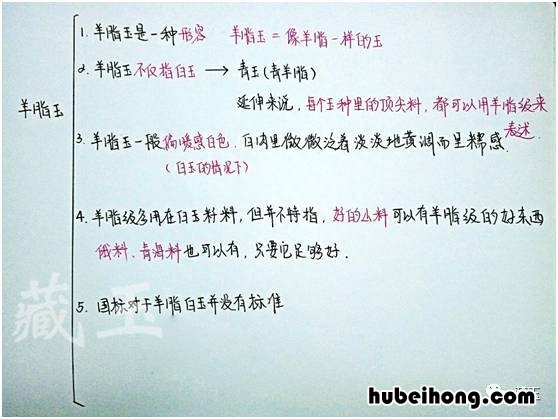 1. 羊脂玉是一种形容 羊脂玉=像羊脂一样的玉
2. 羊脂玉不仅指白玉 → 青玉(青羊脂)
延伸来说,每个玉种里的顶尖料,都可以用羊脂级来
表述.
羊脂玉
3. 羊脂玉一般偏暖感白色.白内里微微泛着淡淡地黄润而呈糯感.
(白玉的情况下)
4. 羊脂级多用在白玉籽料,但并不特指,好的山料可以有羊脂级的好东西
俄料.青海料也可以有,只要它足够好.
5. 国标对于羊脂白玉并没有标准
藏玉
hubeihong.com